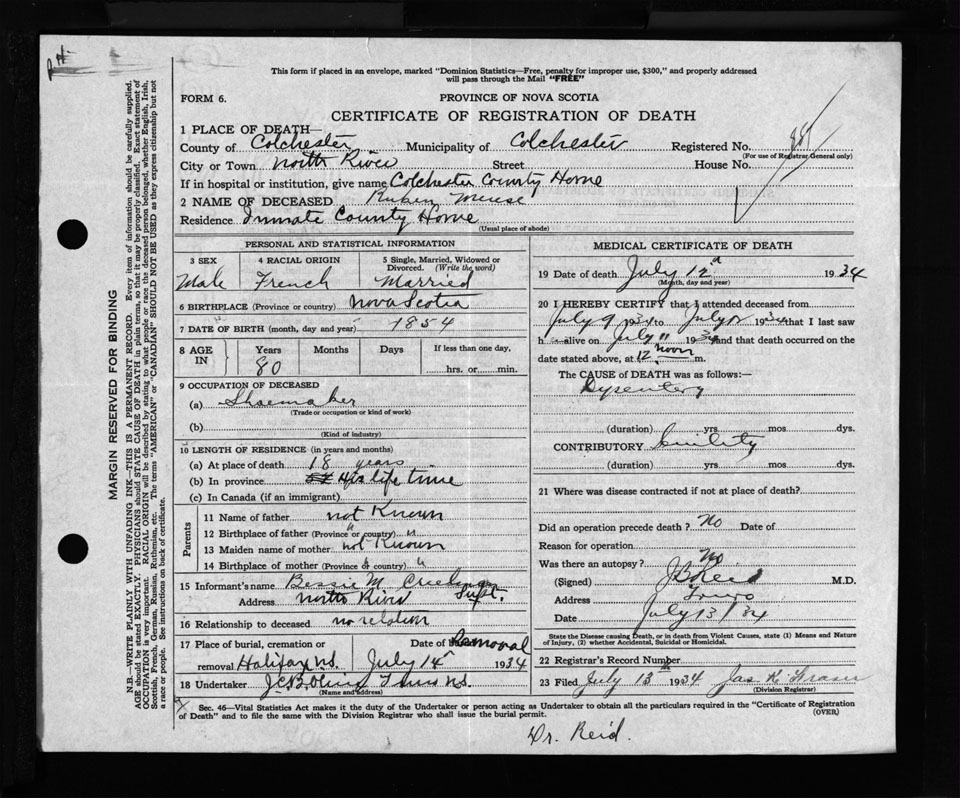 This form if placed in an envelope, marked "Dominion Statistics—Free, penalty for improper use, $300," and properly addressed
will pass through the Mail "FREE"
FORM 6.
PROVINCE OF NOVA SCOTIA
CERTIFICATE OF REGISTRATION OF DEATH
1 PLACE OF DEATH—
County of Colchester Municipality of Colchester Registered No.
(For use of Registrar General only)
City or Town North River Street House No.
If in hospital or institution, give name Colchester County Home
2 NAME OF DECEASED Ruben Meuse
Residence Inmate County Home
(Usual place of abode)
PERSONAL AND STATISTICAL INFORMATION
3 SEX 4 RACIAL ORIGIN 5 Single, Married, Widowed or
Divorced. (Write the word)
Male French Married
6 BIRTHPLACE (Province or country) Nova Scotia
7 DATE OF BIRTH (month, day and year) 1854
8 AGE IN Years Months Days If less than one day,
80 hrs. or min.
9 OCCUPATION OF DECEASED
(a) Shoemaker
(Trade or occupation or kind of work)
(b)
(Kind of industry)
10 LENGTH OF RESIDENCE (in years and months)
(a) At place of death 18 years
(b) In province His life time
(c) In Canada (if an immigrant)
Parents
11 Name of father not Known
12 Birthplace of father (Province or country) " "
13 Maiden name of mother not Known
14 Birthplace of mother (Province or country) " "
15 Informant's name Bessie M Creelman
Supt.
Address North River
16 Relationship to deceased no relation
17 Place of burial, cremation or Date of Removal
removal Halifax N.S. July 14 1934
18 Undertaker
(Name and address)
MEDICAL CERTIFICATE OF DEATH
19 Date of death July 12 1934
(Month, day and year)
20 I HEREBY CERTIFY that I attended deceased from
July 9 1934 to July 12 1934 that I last saw
h alive on July 11 1934 and that death occurred on the
date stated above, at 12 noon m.
The CAUSE of DEATH was as follows:—
Dysentery
(duration) yrs mos dys.
CONTRIBUTORY
(duration) yrs mos dys.
21 Where was disease contracted if not at place of death?
Did an operation precede death? No Date of
Reason for operation
Was there an autopsy? No
(Signed) J B Reid M.D.
Address Truro
Date July 13 / 34
State the Disease causing Death, or in death from Violent Causes, state (1) Means and Nature
of Injury, (2) whether Accidental, Suicidal or Homicidal.
22 Registrar's Record Number
23 Filed July 13 1934 Jas K Fraser
(Division Registrar)
Sec. 46—Vital Statistics Act makes it the duty of the Undertaker or person acting as Undertaker to obtain all the particulars required in the "Certificate of Registration
of Death" and to file the same with the Division Registrar who shall issue the burial permit. (OVER)
Dr. Reid.
MARGIN RESERVED FOR BINDING
N.B.—WRITE PLAINLY WITH UNFADING INK—THIS IS A PERMANENT RECORD. Every item of information should be carefully supplied.
AGE should be stated EXACTLY. PHYSICIANS should STATE CAUSE OF DEATH in plain terms, so that it may be properly classified. Exact statement of
OCCUPATION is very important. RACIAL ORIGIN will be described by stating to what people or race the deceased person belonged, whether English, Irish,
Scottish, French, German, Russian, Ruthenian, etc. The terms "AMERICAN" or "CANADIAN" SHOULD NOT BE USED as they express citizenship but not
a race or people. See instructions on back of certificate.